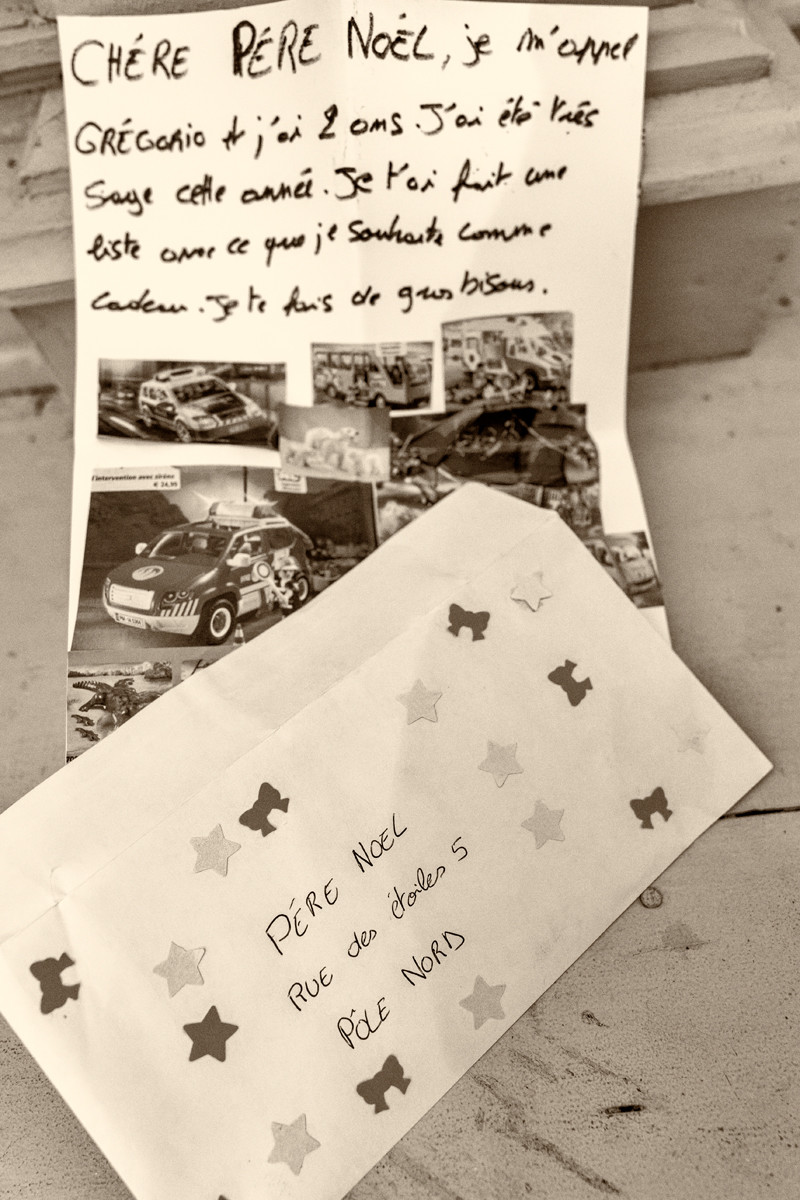 CHÉRE PÉRE NOËL, je m'appel
GRÉGORIO et j'ai 2 ans. J'ai été trés
Sage cette année. Je t'ai fait une
liste avec ce que je souhaite comme
cadeau. Je te fais de gros bisous.
l'intervention avec sirène
€ 24,95
PÉRE NOEL
RUE des étoiles 5
PÔLE NORD